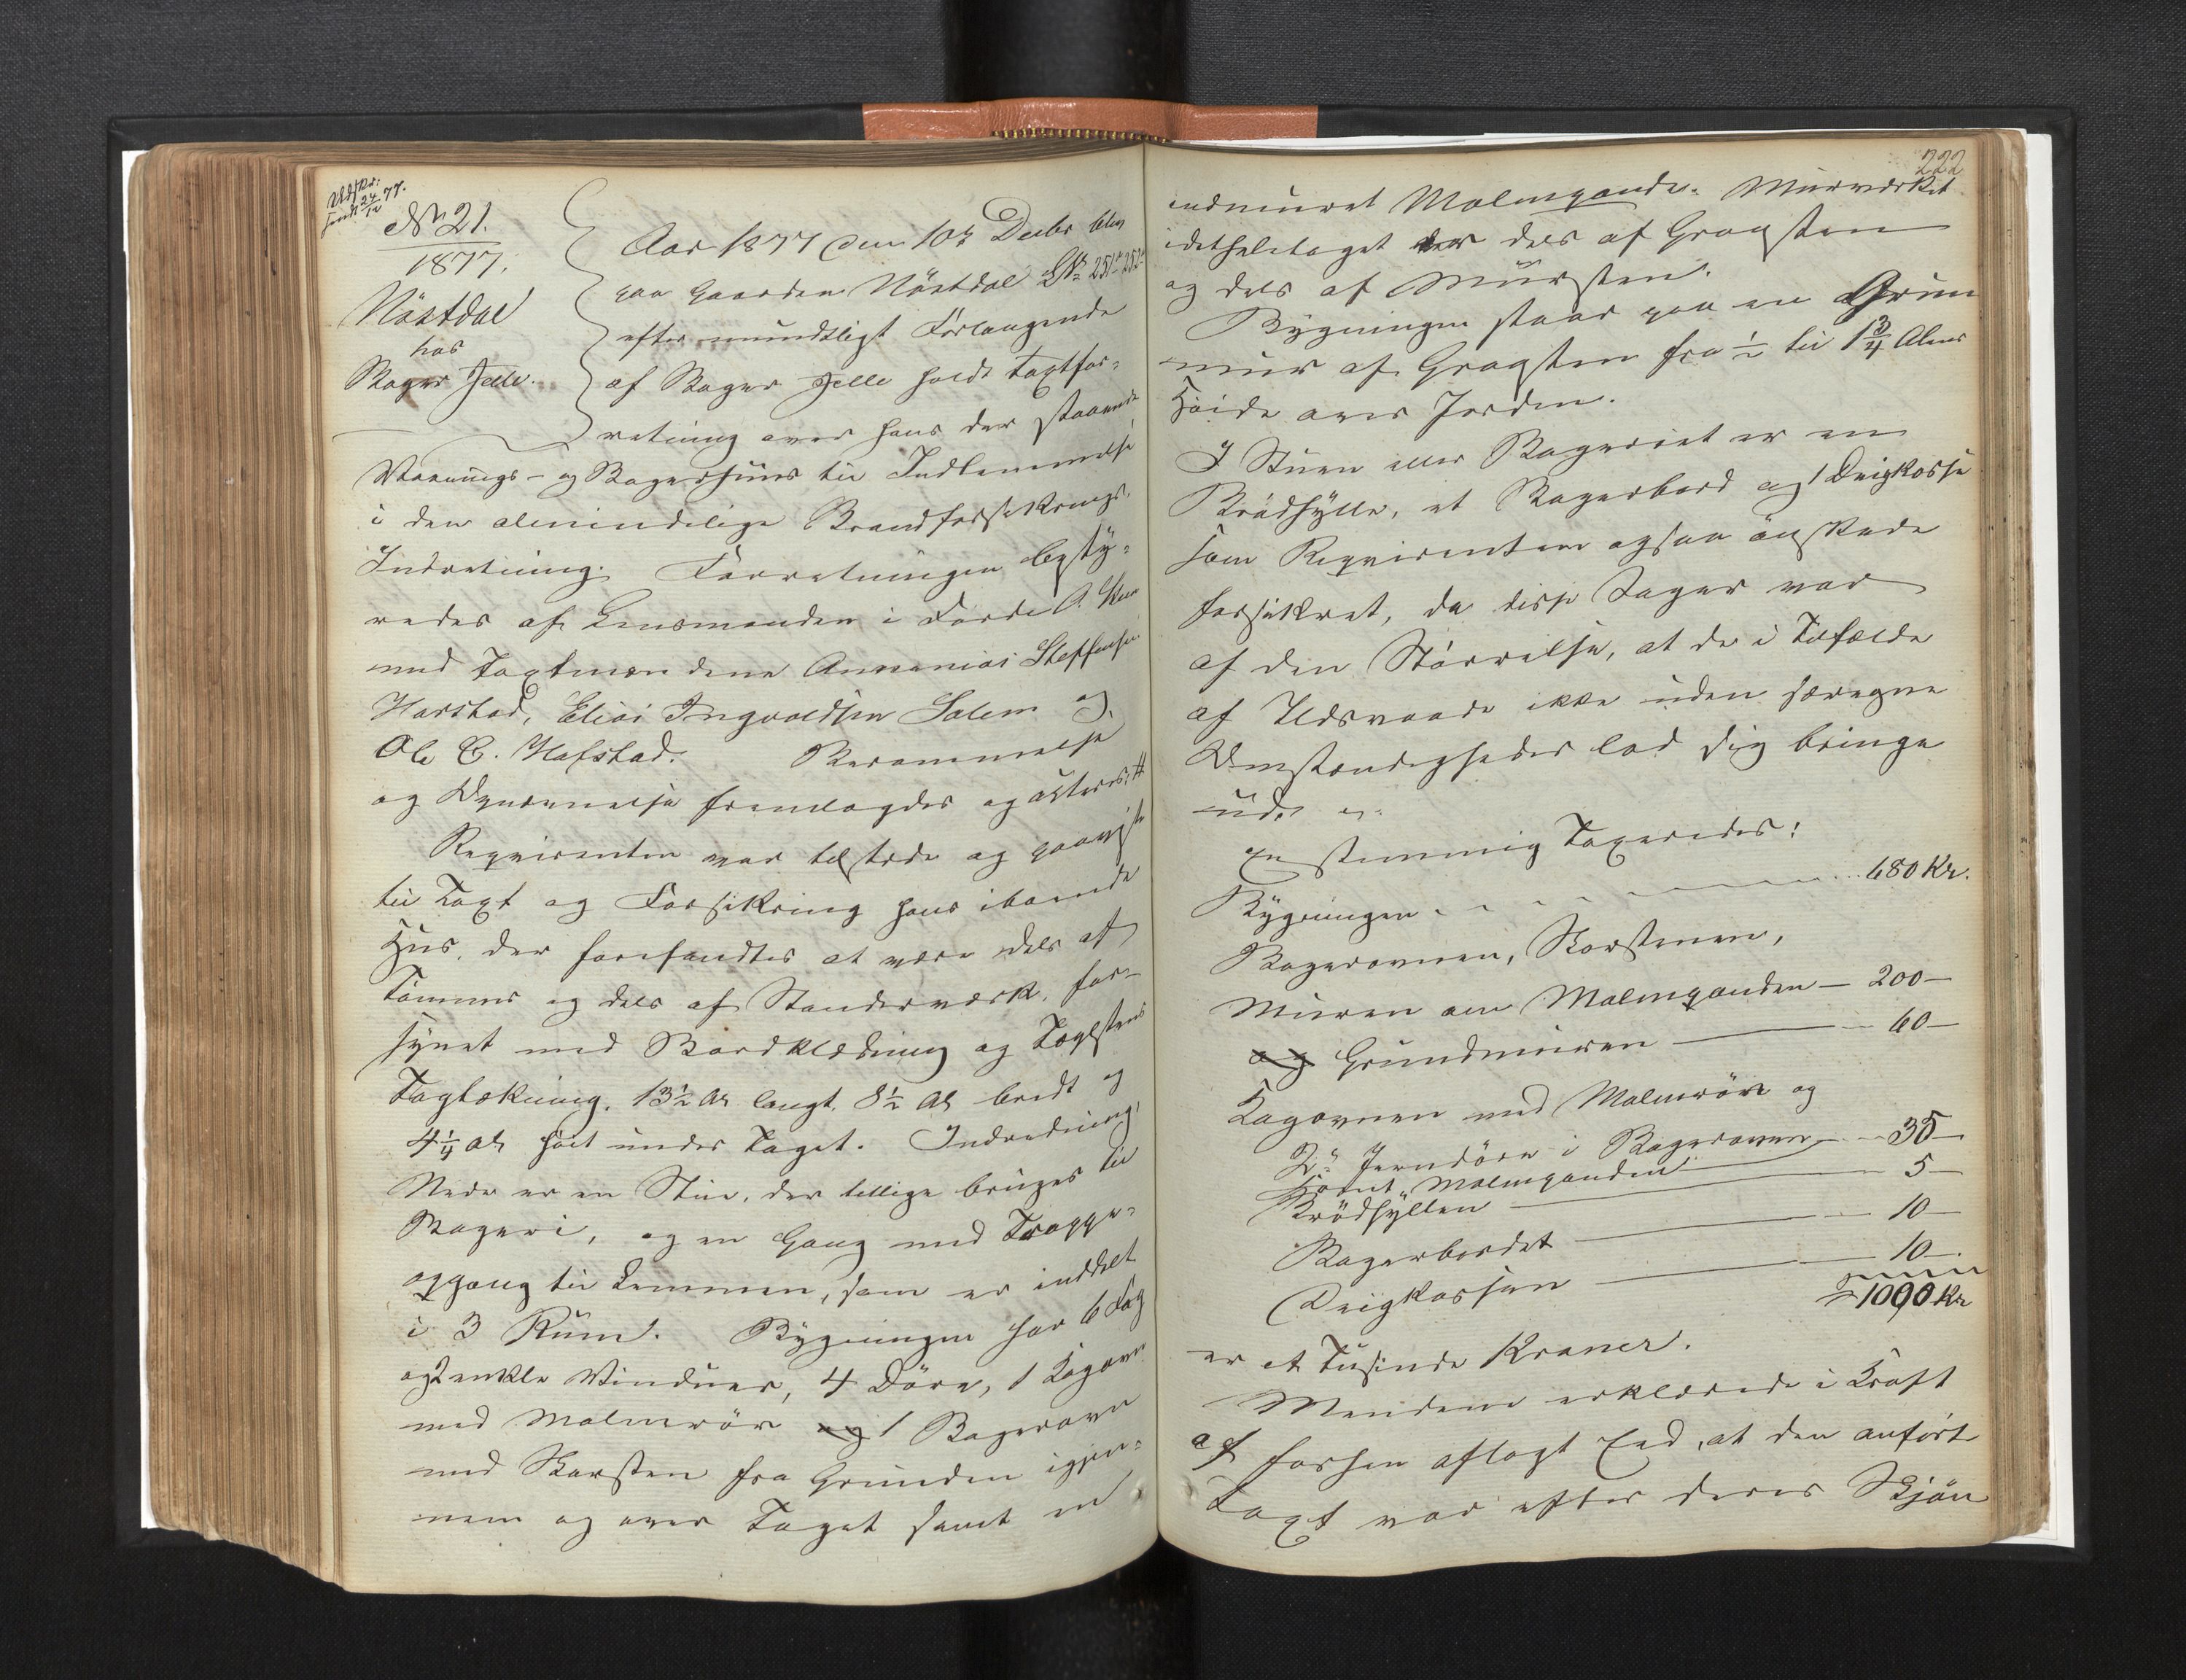 Udskr:
sendt 24/12 77.
No 21.
1877.
Nästdal
hos
Bager Jelle.
Aar 1877 den 10de Decbr blev
paa Gaarden Nästdal LNo 251a 252a
efter mundtligt Forlangende
af Bager Jelle holdt Taxtfor-
retning over hans der staaende
Vaanings- og Bagerhuus til Indlemmelse
i den almindelige Brandforsikrings-
Indretning. Forretningen besty-
redes af Lensmanden i Förde A.
med Taxtmændene Annanias Steffensen
Harstad, Elias Ingvaldsen Solem og
Ole E. Hafstad. Berammelse
og Opnævnelse fremlagdes og
Reqvirenten var tilstede og paaviste
til Taxt og Forsikring hans iboende
Huus, der forefandtes at være dels af
Tömmer og dels af Standerværk, for-
synet med Bordklædning og Taglstens
Tagtækning, 13½ Al langt, 8½ Al bredt og
4¼ Al höit under Taget. Indredning,
Nede er en Stue, der tillige bruges til
Bageri, og en Gang med Trappe-
opgang til Lemmen, som er inddelt
i 3 Rum. Bygningen har 6 Fag
og 2 enkle Vinduer, 4 Döre, 1 Kogovn
med Malmrör og 1 Bagerovn
med Skorsten fra Grunden igjen-
nem og over Taget samt en
222
indmuret Malmpande. Murværket
idetheletaget er dels af Graasten
og dels af Mursten.
Bygningen staar paa en Grun
mur af Graasten fra ½ til 1¾ Alens
Höide over Jorden.
I Stuen eller Bageriet er en
Brödhylle, et Bagerbord og 1 Deigkasse
som Reqvirenten ogsaa önskede
forsikret, da disse Sager var
af den Störrelse, at de i Tilfælde
af Ildsvaade ikke uden særegne
Omstændigheder lod sig bringe
ud.
Enstemmig Taxeredes:
Bygningen - - - - - 680 Kr.
Bagerovnen, Skorstenen,
Muren om Malmpanden — 200 —
og Grundmuren — 60 —
Kogovnen med Malmrör og
2de Jerndöre i Bagerovnen — 35 —
samt Malmpanden
Brödhyllen — 5 —
Bagerbordet — 10 —
Deigkassen — 10 —.
1000 Kr
er et Tusinde Kroner.
Mændene erklærede i Kraft
af forhen aflagt Eed, at den anförte
Taxt var efter deres Skjön